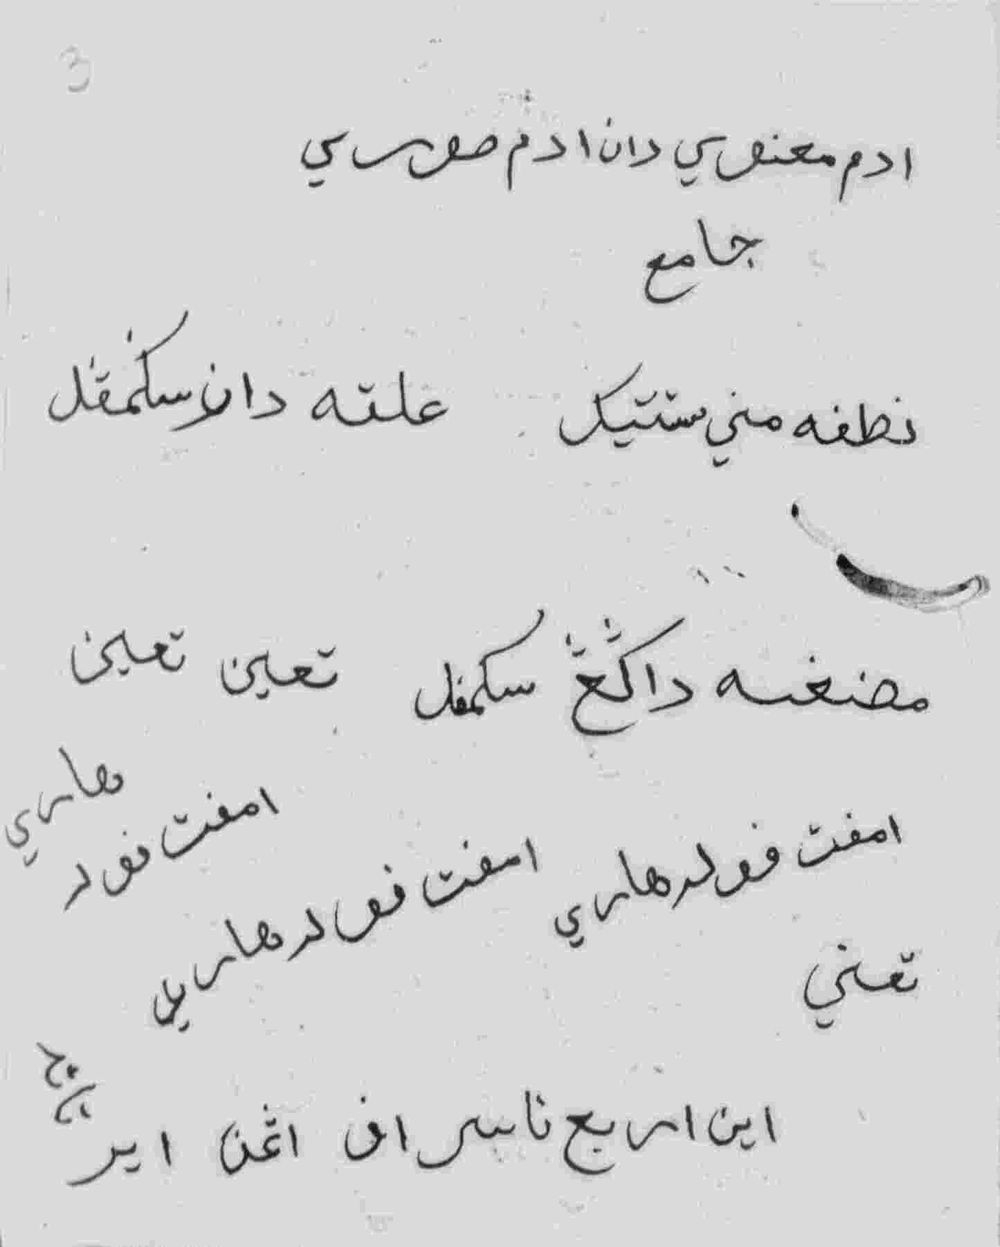 3
ادم معنوي دان ادم صوري
جامع
نطفه مني ستتيک علقه دان سکمڤل
مضغه داڬڠ سکمڤل تعين تعين
امفت فوله هاري امفت فوله هاري امفت فوله هاري
تعني
اين اربع ناسر اف اڠن اير